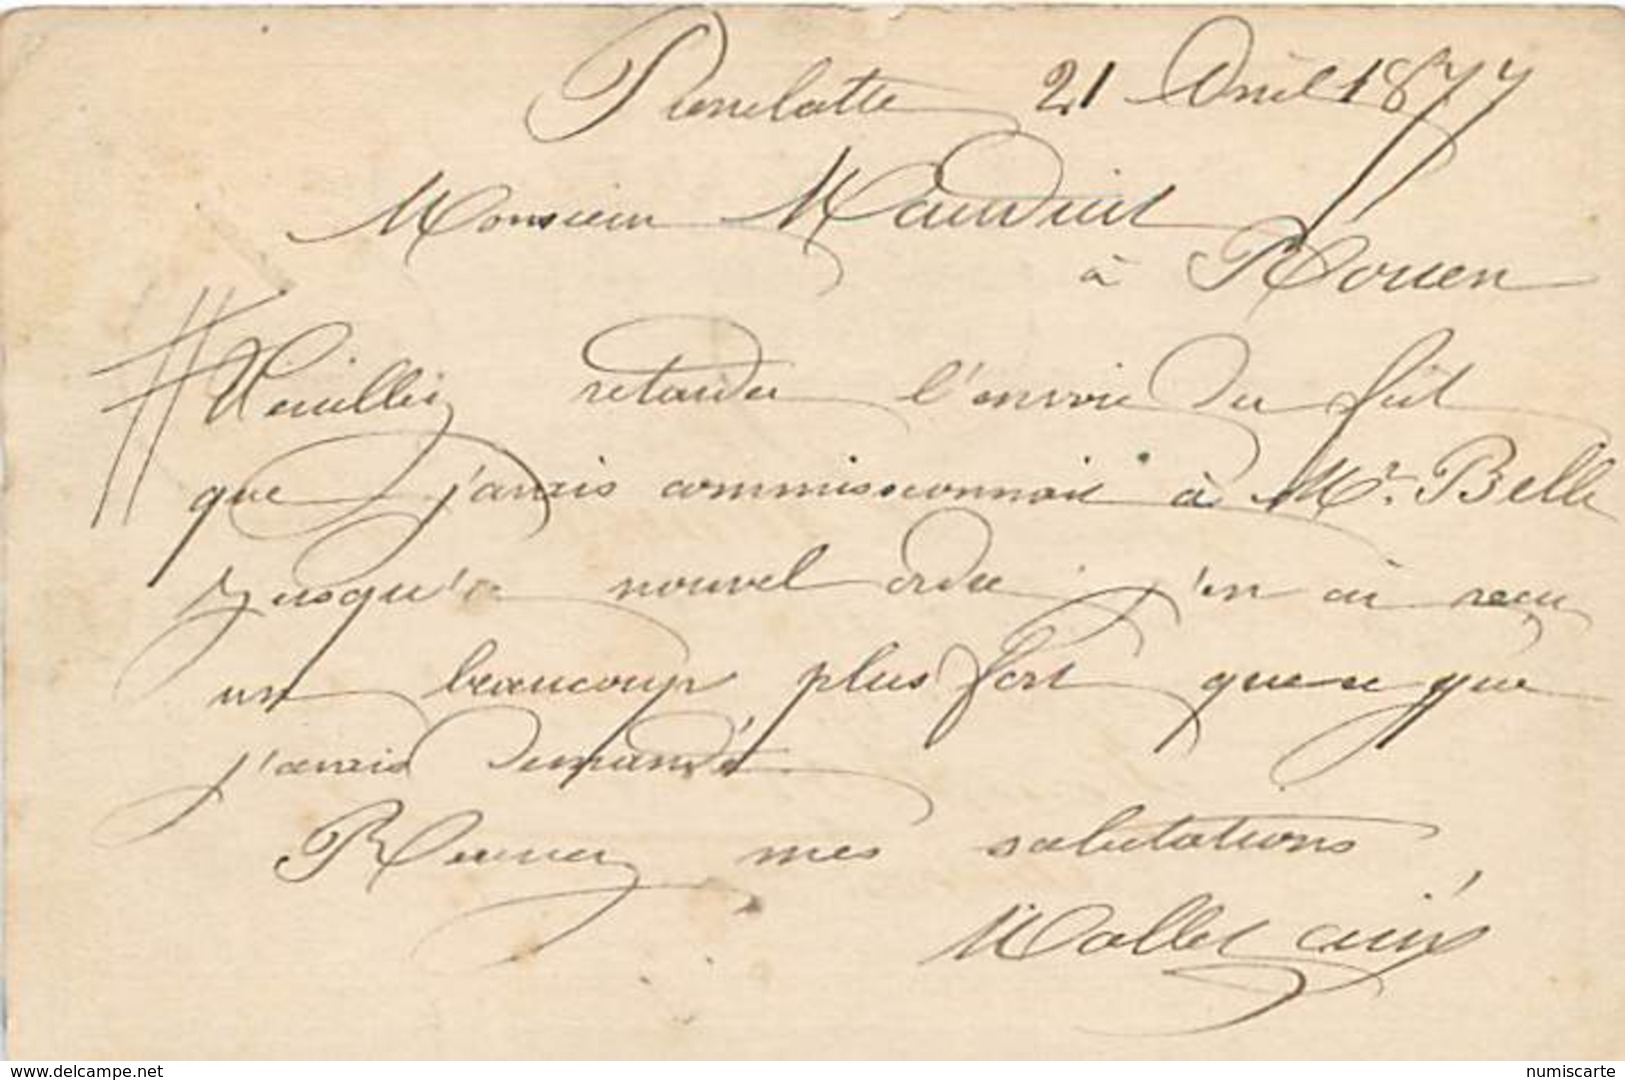 Pierrelatte 21 Avril 1877
Monsieur Mauduit
à Rouen
Veuillez retarder l'envoie du fût
que j'avais commissionnait à Mr. Belle
Jusqu'à nouvel ordre j'en ai reçu
un beaucoup plus fort que ce que
j'avais demandé
Recevez mes salutations
Mallet ainé
www.delcampe.net
numiscarte